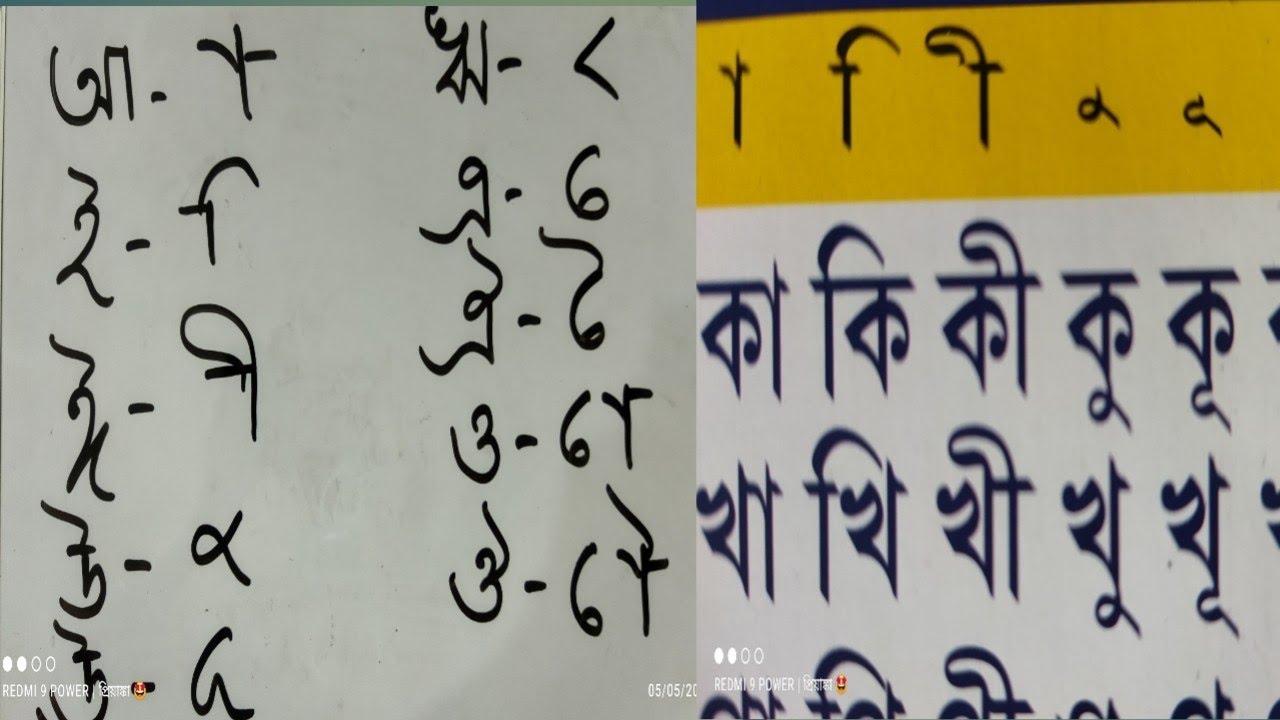 আ - া
ই - ি
ঈ - ী
উ - ু
ঊ - ূ
ঋ - ৃ
এ - ে
ঐ - ৈ
ও - ো
ঔ - ৌ
REDMI 9 POWER | প্রিয়াঙ্কা 🤩
05/05/20
া ি ী ু ূ
কা কি কী কু কূ
খা খি খী খু খূ
REDMI 9 POWER | প্রিয়াঙ্কা 🤩